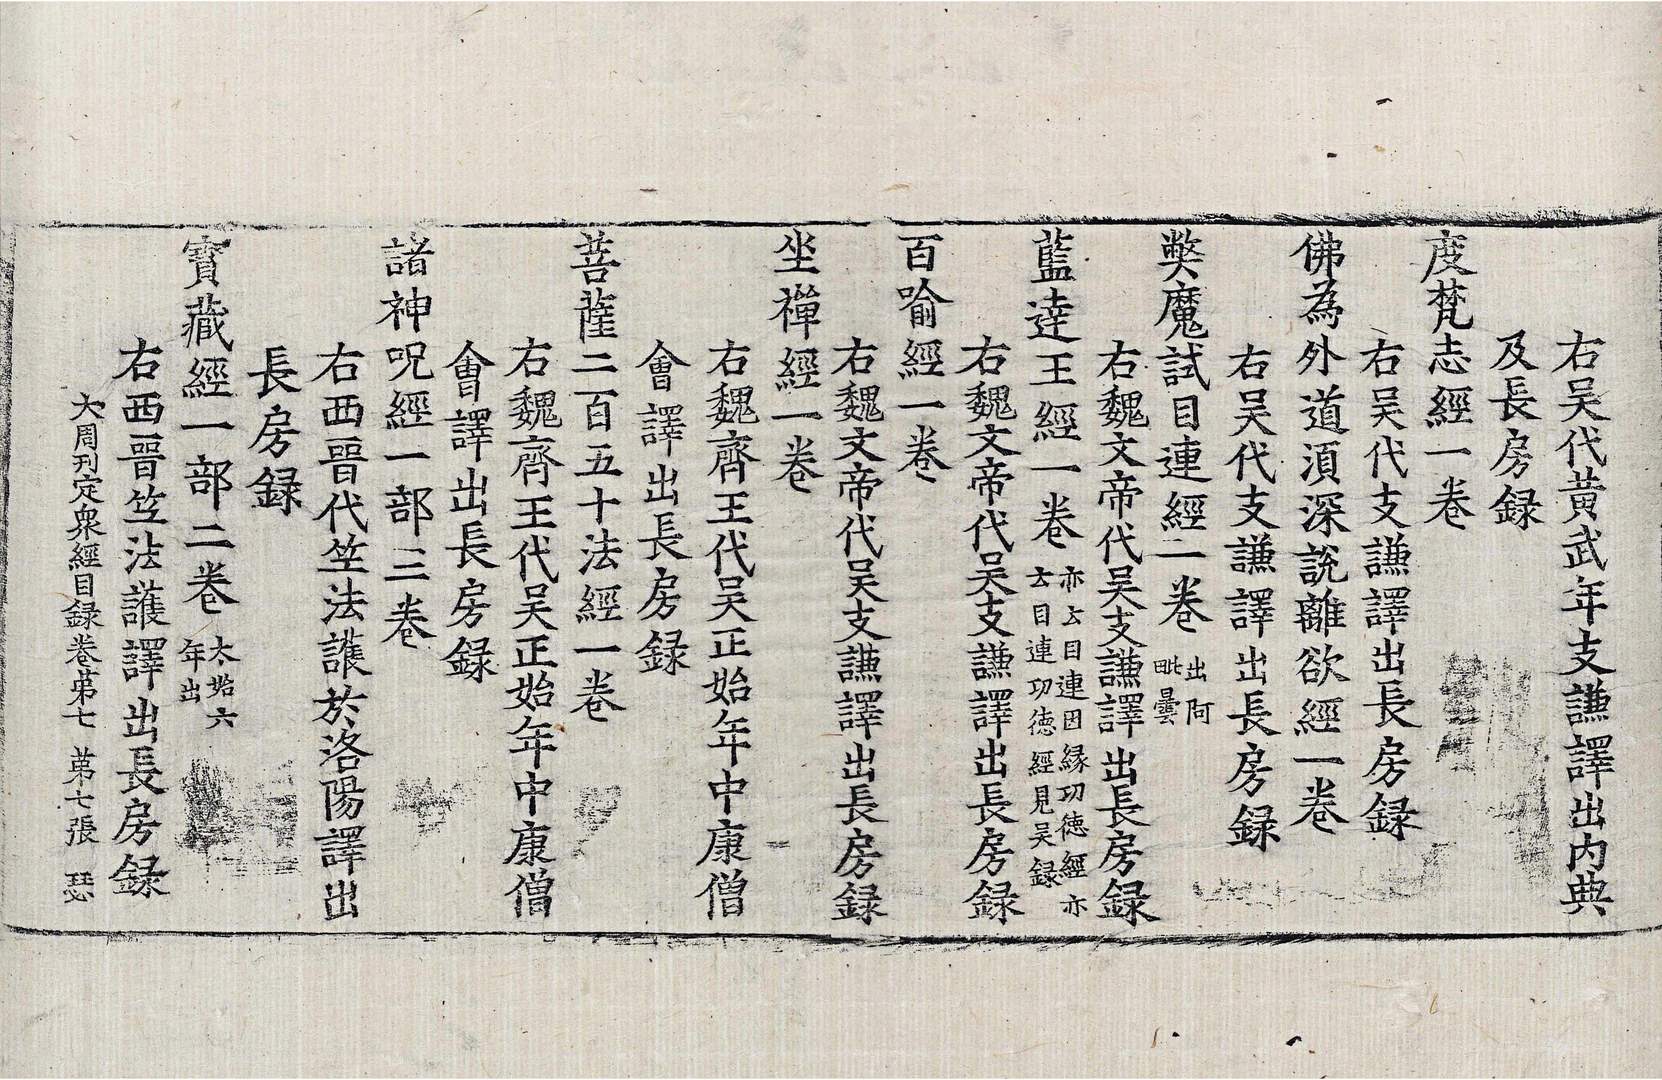 右吳代黃武年支謙譯出內典
及長房録
度梵志經一卷
右吳代支謙譯出長房録
佛為外道湏深說離欲經一卷
右吳代支謙譯出長房録
弊魔試目連經一卷 出阿毗曇
右魏文帝代吳支謙譯出長房録
藍達王經一卷 亦云目連因縁功徳經亦云目連功徳經見吴録
右魏文帝代吳支謙譯出長房録
百喻經一卷
右魏文帝代吳支謙譯出長房録
坐禪經一卷
右魏齊王代吳正始年中康僧
會譯出長房録
菩薩二百五十法經一卷
右魏齊王代吳正始年中康僧
會譯出長房録
諸神呪經一部三卷
右西晉代竺法護於洛陽譯出
長房録
寶藏經一部二卷 太始六年出
右西晉竺法護譯出長房録
大周刊定衆經目録卷苐七 苐七張 瑟